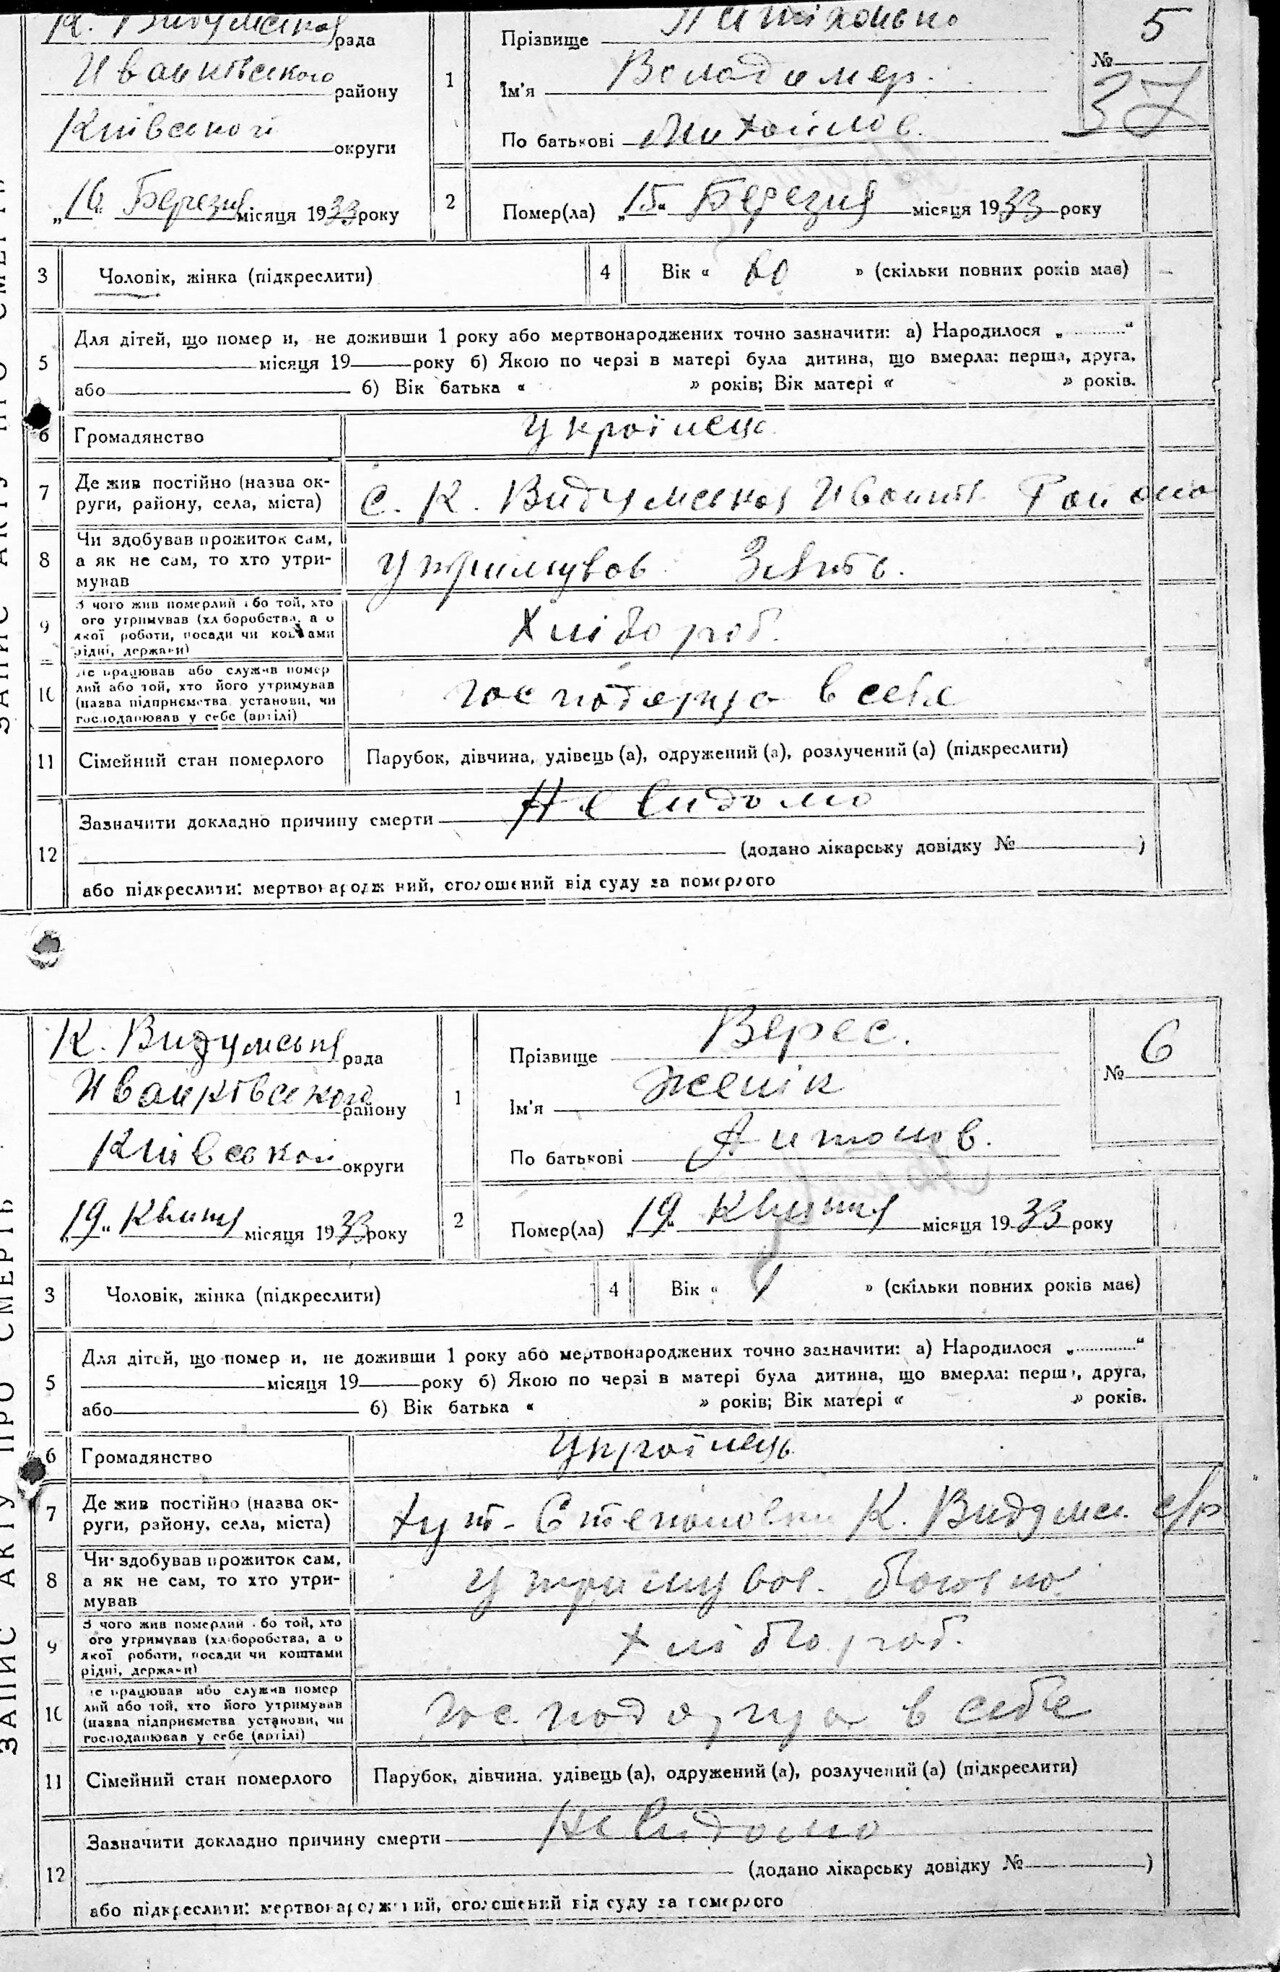 К. Видумська рада
Иванківського району
Київської округи
„16" Березня місяця 1933 року
1
Прізвище
Ім'я Володимер.
По батькові Михайлов.
№ 5
37
2
Помер(ла) „15" Березня місяця 1933 року
3
Чоловік, жінка (підкреслити)
4
Вік « 60 » (скільки повних років має)
5
Для дітей, що помер и, не доживши 1 року або мертвонароджених точно зазначити: а) Народилося „ "
місяця 19 року б) Якою по черзі в матері була дитина, що вмерла: перша, друга,
або б) Вік батька « » років; Вік матері « » років.
6
Громадянство
Українець
7
Де жив постійно (назва ок-
руги, району, села, міста)
с. К. Видумська Иванків. Району
8
Чи здобував прожиток сам,
а як не сам, то хто утри-
мував
утримував Зять.
9
З чого жив померлий або той, хто
ого утримував (хліборобства, а о
якої роботи, посади чи коштами
рідні, держави)
Хлібороб.
10
де працював або служив помер
лий або той, хто його утримував
(назва підприємства установи, чи
господарював у себе (артілі)
господарува в себе
11
Сімейний стан померлого
Парубок, дівчина, удівець (а), одружений (а), розлучений (а) (підкреслити)
12
Зазначити докладно причину смерти Не видомо
(додано лікарську довідку № )
або підкреслити: мертвонароджений, оголошений від суду за померлого
ЗАПИС АКТУ ПРО СМЕРТЬ
К. Видумська рада
Иванківського району
Київської округи
„19" Квітня місяця 1933 року
1
Прізвище Верес.
Ім'я
По батькові Антонов.
№ 6
2
Помер(ла) „19" Квітня місяця 1933 року
3
Чоловік, жінка (підкреслити)
4
Вік « 1 » (скільки повних років має)
5
Для дітей, що помер и, не доживши 1 року або мертвонароджених точно зазначити: а) Народилося „ "
місяця 19 року б) Якою по черзі в матері була дитина, що вмерла: перш , друга,
або б) Вік батька « » років; Вік матері « » років.
6
Громадянство
Українець
7
Де жив постійно (назва ок-
руги, району, села, міста)
хут. Степановка К. Видумс. с/р
8
Чи здобував прожиток сам,
а як не сам, то хто утри-
мував
утримував батько
9
З чого жив померлий або той, хто
ого утримував (хліборобства, а о
якої роботи, посади чи коштами
рідні, держави)
Хлібороб.
10
де працював або служив помер
лий або той, хто його утримував
(назва підприємства установи, чи
господарював у себе (артілі)
господарува в себе
11
Сімейний стан померлого
Парубок, дівчина, удівець (а), одружений (а), розлучений (а) (підкреслити)
12
Зазначити докладно причину смерти Не видомо
(додано лікарську довідку № )
або підкреслити: мертвонароджений, оголошений від суду за померлого
ЗАПИС АКТУ ПРО СМЕРТЬ